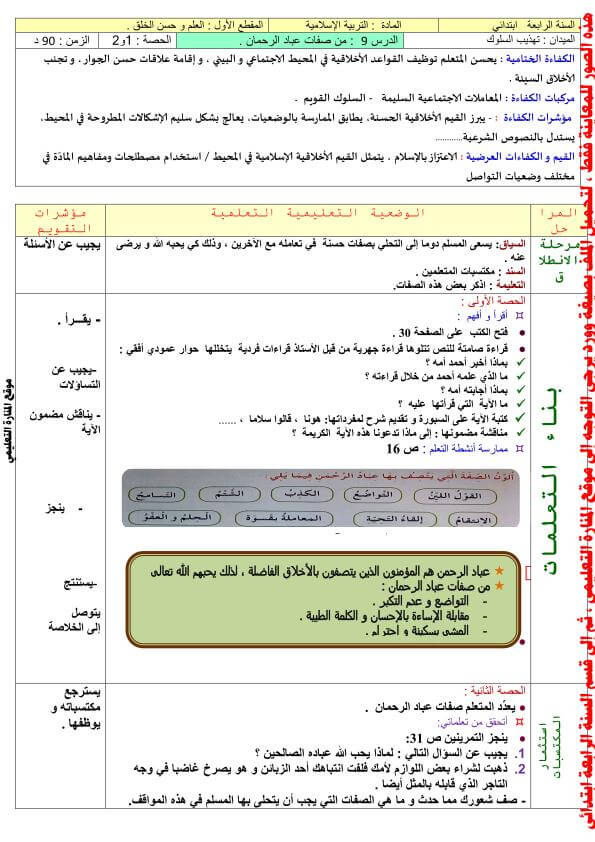 السنة الرابعة ابتدائي
المادة : التربية الإسلامية
المقطع الأول : العلم و حسن الخلق .
الميدان : تهذيب السلوك
الدرس 9 : من صفات عباد الرحمان .
الحصة : 1و2
الزمن : 90 د
الكفاءة الختامية : يحسن المتعلم توظيف القواعد الأخلاقية في المحيط الاجتماعي و البيئي ، و إقامة علاقات حسن الجوار ، و تجنب
الأخلاق السيئة .
مركبات الكفاءة : المعاملات الاجتماعية السليمة - السلوك القويم .
مؤشرات الكفاءة : - يبرز القيم الأخلاقية الحسنة، يطابق الممارسة بالوضعيات، يعالج بشكل سليم الإشكالات المطروحة في المحيط،
يستدل بالنصوص الشرعية............
القيم و الكفاءات العرضية : الاعتزاز بالإسلام ، يتمثل القيم الأخلاقية الإسلامية في المحيط / استخدام مصطلحات ومفاهيم المادّة في
مختلف وضعيات التواصل
المرا
حل
الوضعية التعليمية التعلمية
مؤشرات
التقويم
مرحلة
الانطلا
ق
السياق: يسعى المسلم دوما إلى التحلي بصفات حسنة في تعامله مع الآخرين ، وذلك كي يحبه الله و يرضى
عنه .
السند : مكتسبات المتعلمين .
التعليمة : اذكر بعض هذه الصفات.
يجيب عن الأسئلة
بناء التعلمات
الحصة الأولى :
أقرأ و أفهم :
فتح الكتب على الصفحة 30 .
قراءة صامتة للنص تتلوها قراءة جهرية من قبل الأستاذ قراءات فردية يتخللها حوار عمودي أفقي :
بماذا أخبر أحمد أمه ؟
ما الذي علمه أحمد من خلال قراءته ؟
بماذا أجابته أمه ؟
ما الآية التي قرأتها عليه ؟
كتابة الآية على السبورة و تقديم شرح لمفرداتها: هونا ، قالوا سلاما ، ......
مناقشة مضمونها : إلى ماذا تدعونا هذه الآية الكريمة ؟
ممارسة أنشطة التعلم : ص 16
ألوّن الصّفة الّتي يتّصف بها عباد الرّحمن فيما يلي:
القول الليّن
التّواضع
الكذب
الشّتم
التّسامح
الانتقام
إلقاء التّحيّة
المعاملة بقسوة
الحلم و العفو
عباد الرحمن هم المؤمنون الذين يتصفون بالأخلاق الفاضلة ، لذلك يحبهم الله تعالى
من صفات عباد الرحمان :
- التواضع و عدم التكبر .
- مقابلة الإساءة بالإحسان و الكلمة الطيبة .
- المشي بسكينة و احترام .
- يقــرأ .
-يجيب عن
التساؤلات
- يناقش مضمون
الآية
- ينجز
-يستنتج
يتوصل
إلى الخلاصة
استثمار
المكتسبات
الحصة الثانية :
يعدّد المتعلم صفات عباد الرحمان .
أتحقق من تعلماتي:
ينجز التمرينين ص 31:
1. يجيب عن السؤال التالي : لماذا يحب الله عباده الصالحين ؟
2. ذهبت لشراء بعض اللوازم لأمك فلفت انتباهك أحد الزبائن و هو يصرخ غاضبا في وجه
التاجر الذي قابله بالمثل أيضا .
- صف شعورك مما حدث و ما هي الصفات التي يجب أن يتحلى بها المسلم في هذه المواقف.
يسترجع
مكتسباته و
يوظفها .
هذه الصور للمعاينة فقط ، لتحميل الملف بصيغة وورد يرجى التوجه إلى موقع المنارة التعليمي ، ثم إلى قسم السنة الرابعة ابتدائي
موقع المنارة التعليمي